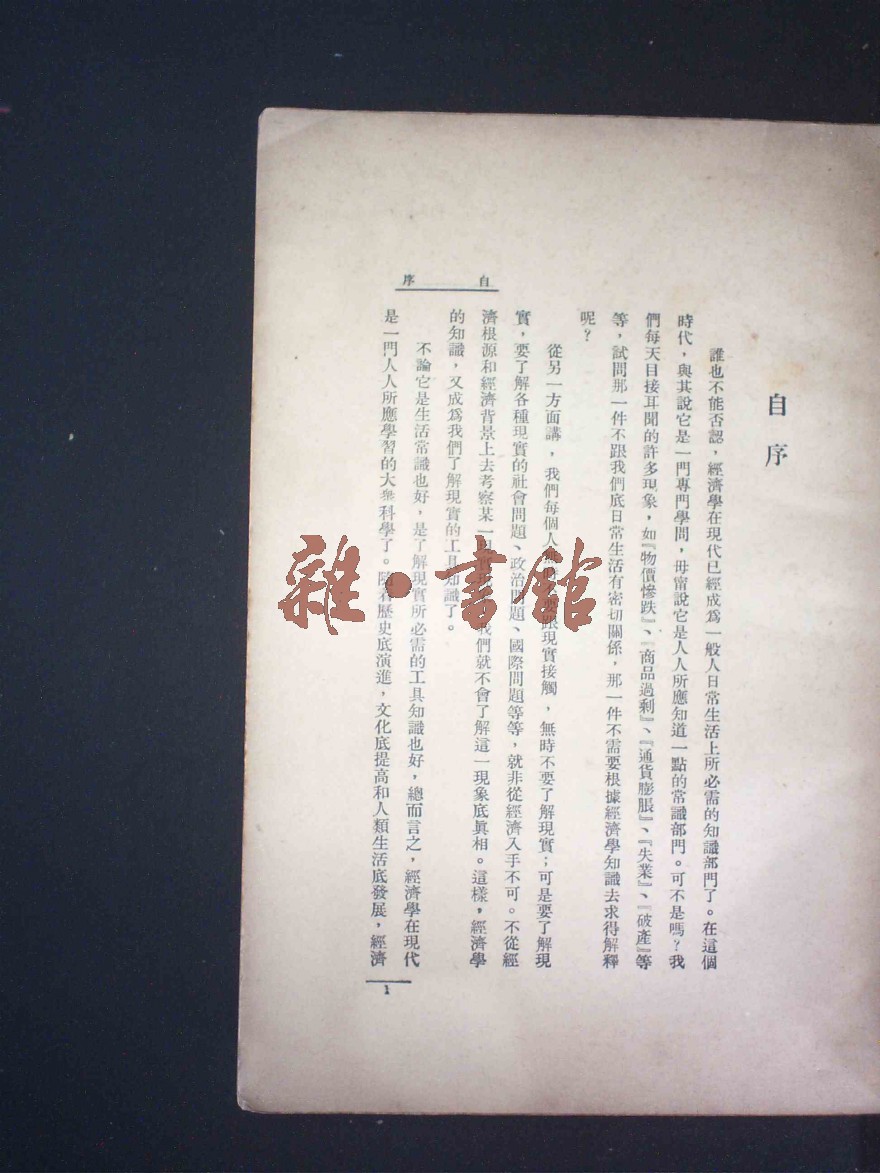 自序
自序
誰也不能否認，經濟學在現代已經成爲一般人日常生活上所必需的知識部門了。在這個
時代，與其說它是一門專門學問，毋甯說它是人人所應知道一點的常識部門。可不是嗎？我
們每天目接耳聞的許多現象，如『物價慘跌』、『商品過剩』、『通貨膨脹』、『失業』、『破產』等
等，試問那一件不跟我們底日常生活有密切關係，那一件不需要根據經濟學知識去求得解釋
呢？
從另一方面講，我們每個人無跟現實接觸，無時不要了解現實；可是要了解現
實，要了解各種現實的社會問題、政治問題、國際問題等等，就非從經濟入手不可。不從經
濟根源和經濟背景上去考察某一我們就不會了解這一現象底眞相。這樣，經濟學
的知識，又成爲我們了解現實的工具知識了。
不論它是生活常識也好，是了解現實所必需的工具知識也好，總而言之，經濟學在現代
是一門人人所應學習的大衆科學了。隨着歷史底演進，文化底提高和人類生活底發展，經濟
1
雜·書館